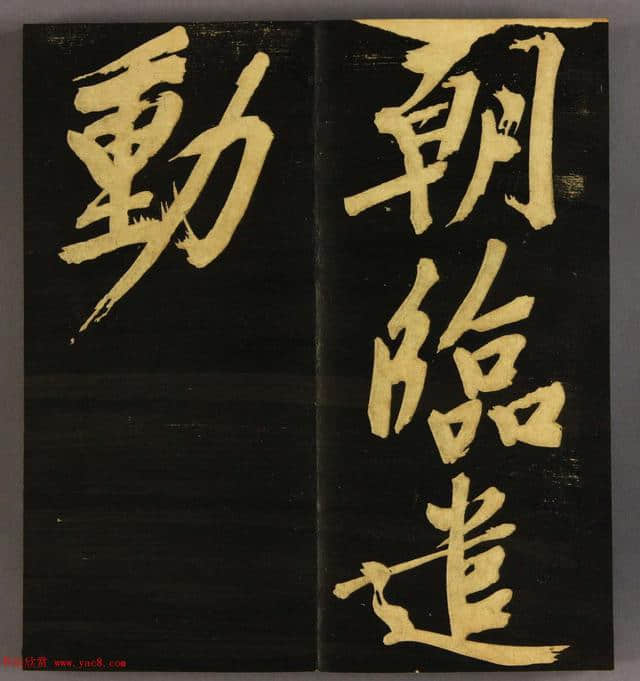 朝臨遣
動
欣赏 www.yac8.com